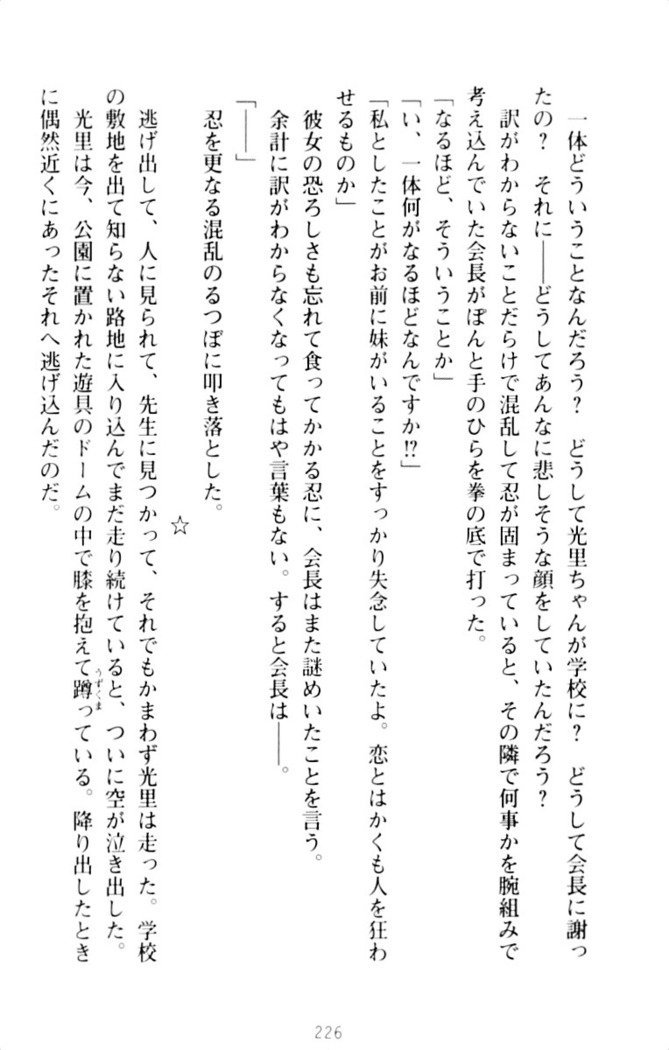 一体どういうことなんだろう？　どうして光里ちゃんが学校に？　どうして会長に謝っ
たの？　それに――どうしてあんなに悲しそうな顔をしていたんだろう？
　訳がわからないことだらけで混乱して忍が固まっていると、その隣で何事かを腕組みで
考え込んでいた会長がぽんと手のひらを拳の底で打った。
「なるほど、そういうことか」
「い、一体何がなるほどなんですか!?」
「私としたことがお前に妹がいることをすっかり失念していたよ。恋とはかくも人を狂わ
せるものか」
　彼女の恐ろしさも忘れて食ってかかる忍に、会長はまた謎めいたことを言う。
　余計に訳がわからなくなってもはや言葉もない。すると会長は――。
「――」
　忍を更なる混乱のるつぼに叩き落とした。
☆
　逃げ出して、人に見られて、先生に見つかって、それでもかまわず光里は走った。学校
の敷地を出て知らない路地に入り込んでまだ走り続けていると、ついに空が泣き出した。
　光里は今、公園に置かれた遊具のドームの中で膝を抱えて蹲っている。降り出したとき
うずくま
に偶然近くにあったそれへ逃げ込んだのだ。
226